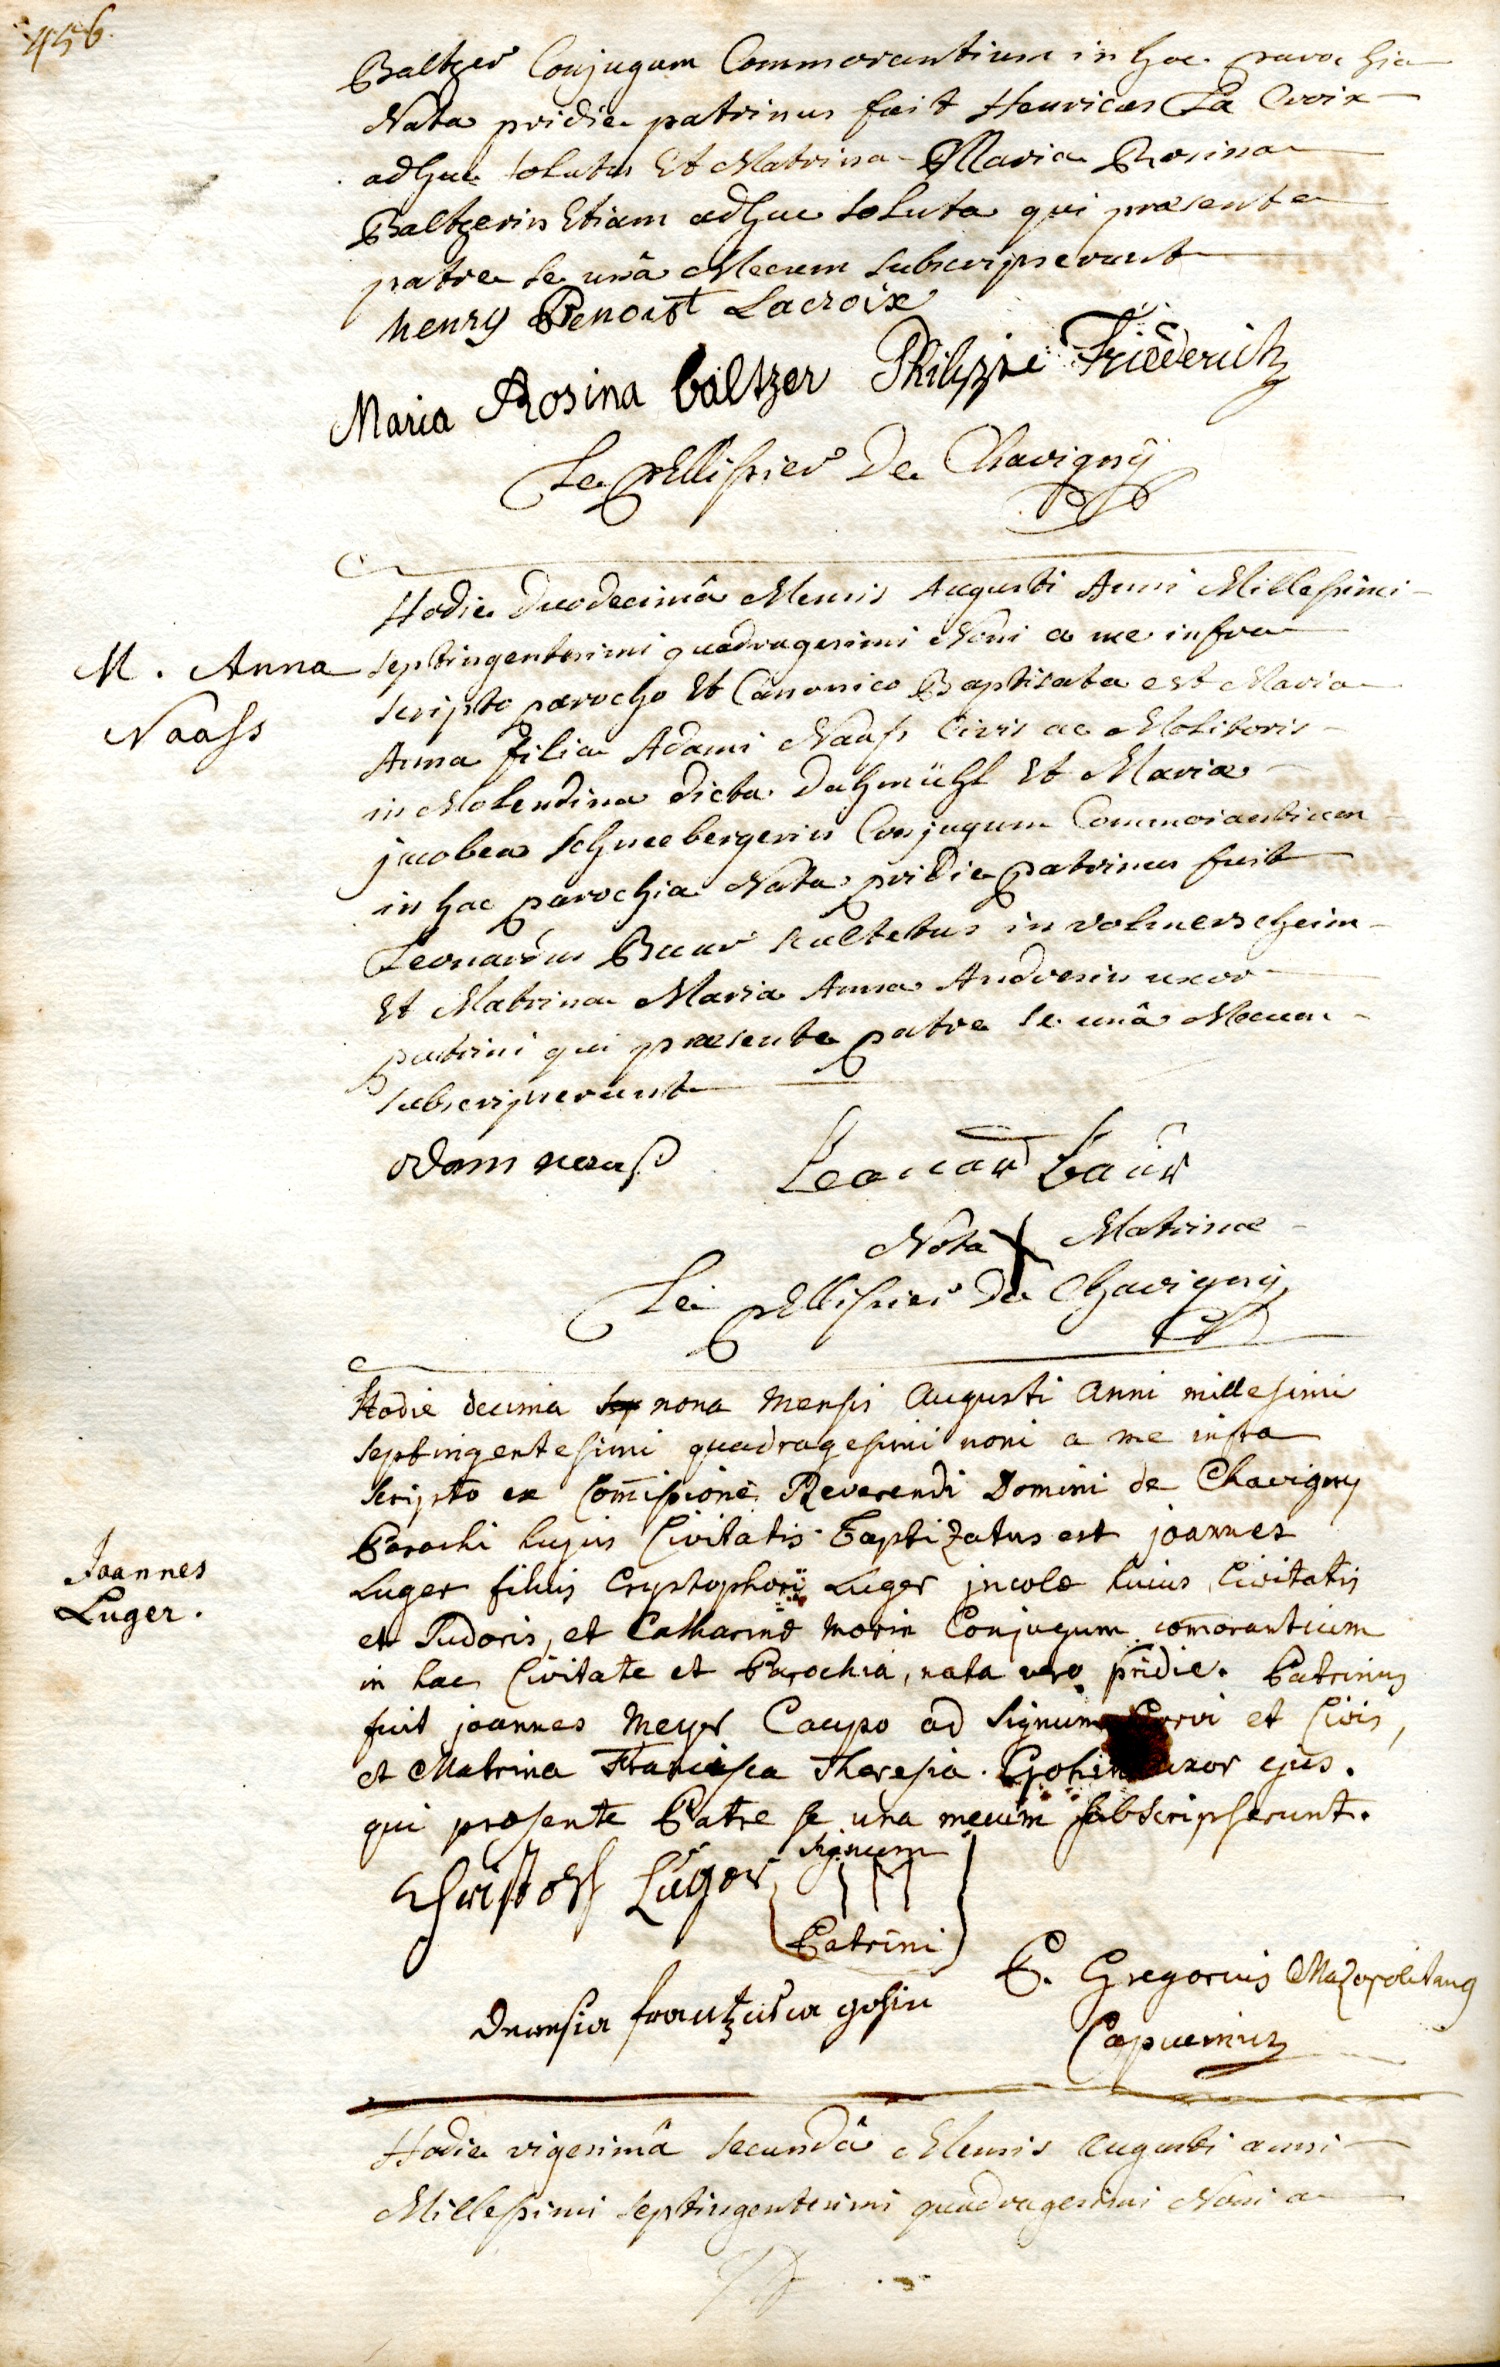 456.
Baltzer Conjugum Commorantium in hac parochia
Nata pridie patrinus fuit Henricus La Croix
adhuc solutus Et Matrina Maria Rosina
Baltzerin Etiam adhuc soluta qui præsente
patre se unâ Mecum subscripserunt
henry Benoist Lacroix
Maria Rosina baltzer Philippe Friederich
Le pellissier De Chavigny
Hodie duodecimâ Mensis Augusti Anni Millesimi
M. Anna
Naass
septingentesimi quadragesimi Noni a me infra
scripto parocho Et Canonico Baptisata est Maria
Anna filia Adami Naass Civis ac Molitoris
in Molendina dicta Dahmühl Et Mariæ
jacobea Schneebergerin Conjugum Commorantium
in hac parochia Nata pridie patrinus fuit
Leonardus Baur scultetus in volmersheim
Et Matrina Maria Anna Andresin uxor
patrini qui præsente patre se unâ Mecum
subscripserunt
Leonard baur
Nota X Matrinæ
Le pellissier De Chavigny
Hodie decima nona Mensis Augusti Anni millesimi
septingentesimi quadragesimi noni a me infra
scripto ex Comissione Reverendi Domini de Chavigny
Parochi hujus Civitatis baptizatus est joannes
Joannes
Luger.
Luger filius Crystophori Luger jncolæ huius Civitatis
et Sudoris, et Catharinæ Morin Conjugum comorantium
in hac Civitate et Parochia, nata vero pridie. Patrinus
fuit joannes Meyer Caupo ad Signum Corvi et Civis,
et Matrina Francisca Theresia Gohin uxor ejus.
qui præsente Patre se una mecum subscripserunt.
Christoph Luger
Signum
I M
Patrini
frantzisca gohin
P. Gregorius
Capucinus
Hodie vigesimâ secundâ Mensis augusti anni
Millesimi septingentesimi quadragesimi Noni a